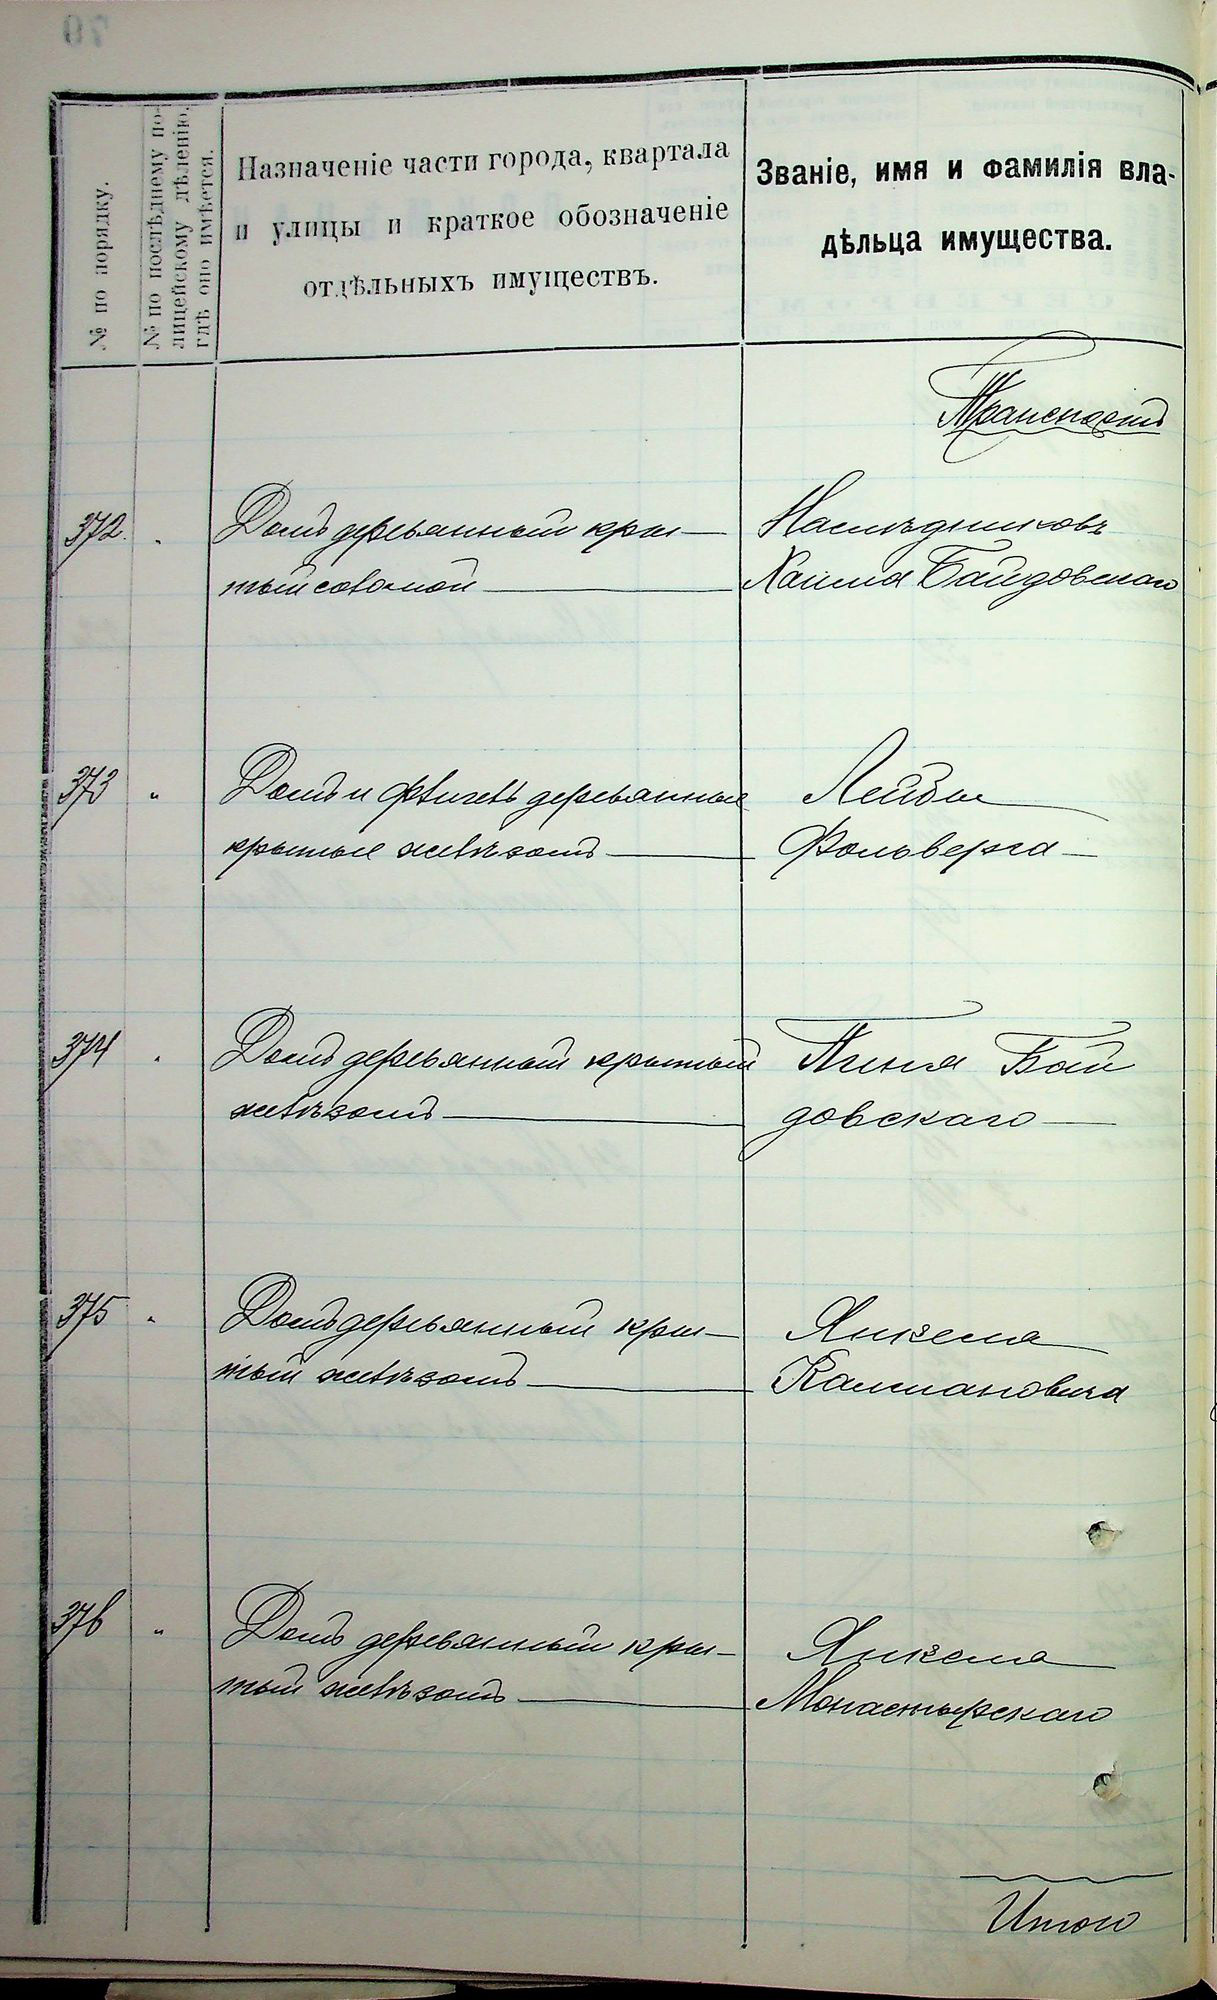 № по порядку.
№ по послѣднему по-
лицейскому дѣленію,
гдѣ оно имѣется.
Назначеніе части города, квартала
и улицы и краткое обозначеніе
отдѣльныхъ имуществъ.
Званіе, имя и фамилія вла-
дѣльца имущества.
Транспортъ
372. Домъ деревянный кры- Наслѣдниковъ
тый соломой Хаима Байдовскаго
373 " Домъ и флигель деревянные Лейбы
крытые желѣзомъ Фольверга
374 " Домъ деревянный крытый Пиня Бай
желѣзомъ довскаго
375 " Домъ деревянный кры- Янкеля
тый желѣзомъ Калмановича
376 " Домъ деревянный кры- Янкеля
тый желѣзомъ Монастырскаго
Итого